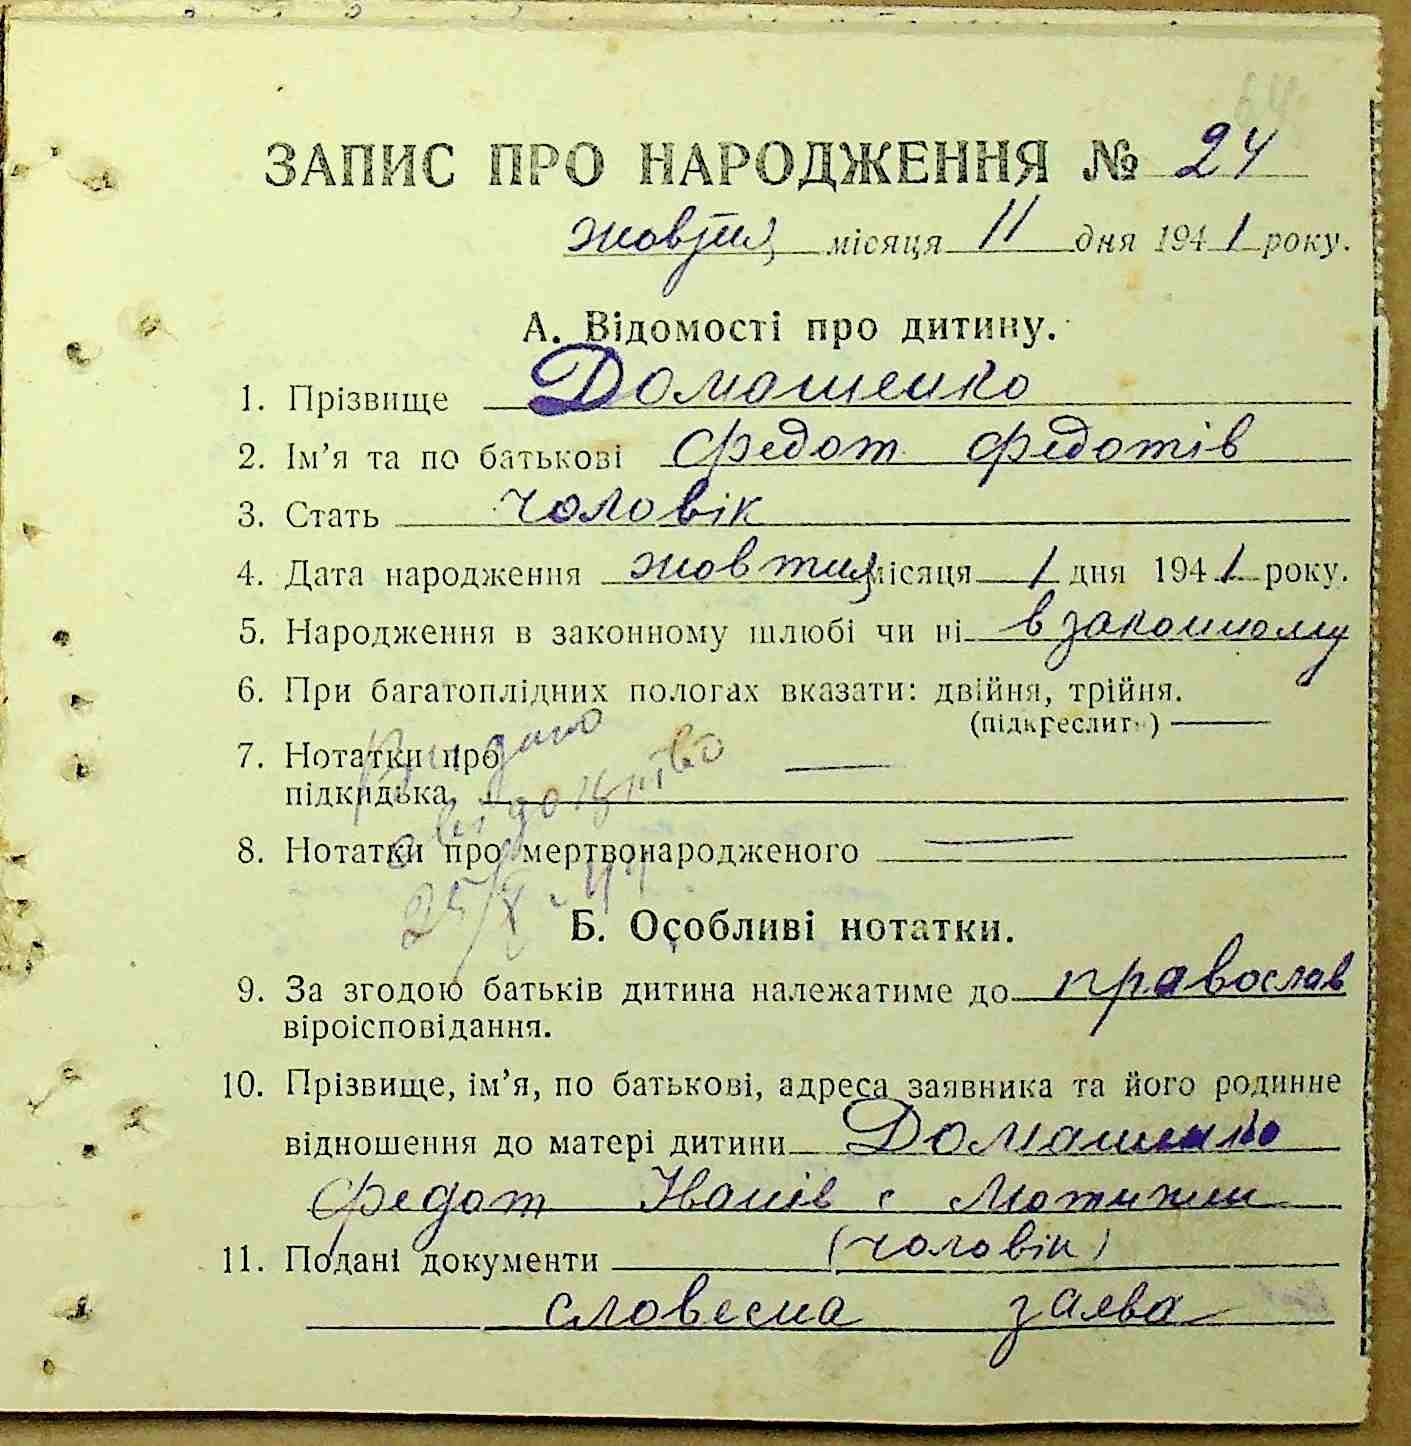 64
ЗАПИС ПРО НАРОДЖЕННЯ № 24
жовтня місяця 11 дня 1941 року.
А. Відомості про дитину.
1. Прізвище Домашенко
2. Ім'я та по батькові Федот Федотів
3. Стать чоловік
4. Дата народження жовтня місяця 1 дня 1941 року.
5. Народження в законному шлюбі чи ні в законному
6. При багатоплідних пологах вказати: двійня, трійня.
(підкреслить) —
7. Нотатки про —
підкидька
Видано
свідоцтво
8. Нотатки про мертвонародженого —
25/X - 41
Б. Особливі нотатки.
9. За згодою батьків дитина належатиме до православ
віроісповідання.
10. Прізвище, ім'я, по батькові, адреса заявника та його родинне
відношення до матері дитини Домашенко
Федот Іванів с
(чоловік)
11. Подані документи
словесна заява